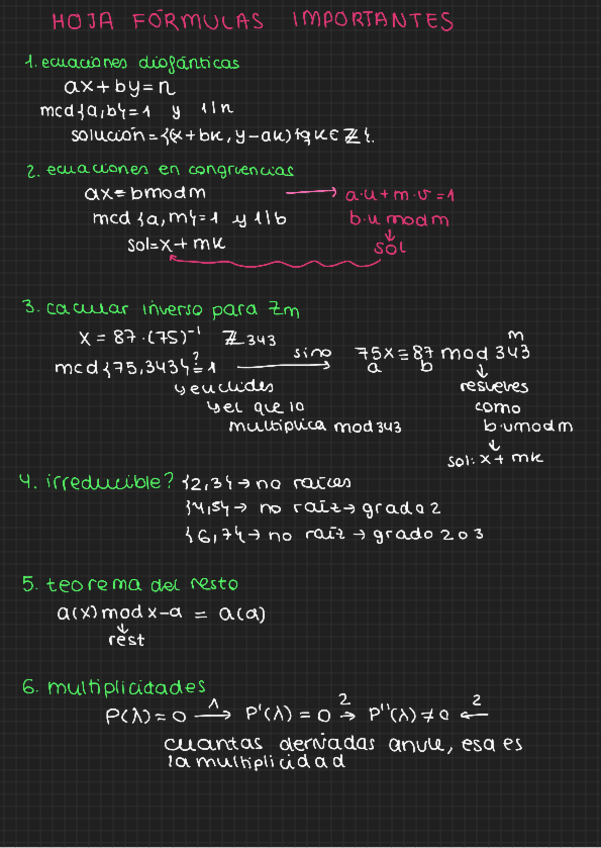 HOJA FÓRMULAS IMPORTANTES
1. ecuaciones diofánticas
ax+by=n
mcd{a,b}=1 y 1|n
solución={(x+bk, y-ak) tq k∈ℤ}.
2. ecuaciones en congruencias
ax=bmodm → a·u+m·v=1
mcd {a,m}=1 y 1|b b·u modm
↓
sol=x+mk sol
3. cacular inverso para Zm
m
x = 87·(75)⁻¹ ℤ343 sino 75x≡87 mod 343
a b ↓
mcd{75,343}≟1 → resuelves
y euclides como
y el que lo b·umodm
multiplica mod 343 ↓
sol: x+mk
4. irreducible? {2,3} → no raíces
{4,5} → no raíz → grado 2
{6,7} → no raíz → grado 2 o 3
5. teorema del resto
a(x) mod x-a = a(a)
↓
rest
6. multiplicidades
1 2 2
P(λ)=0 → P'(λ)=0 → P''(λ)≠0 ←
cuantas derivadas anule, esa es
la multiplicidad